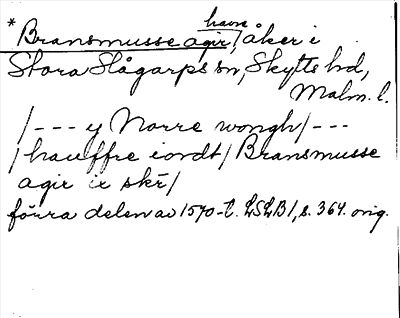 *Bransmusse agir, havre åker i
Stora Slågarps sn, Skytts hd,
Malm. l.
/--- y Norre wongh/---
/hauffre iordt/ Bransmusse
agir ix skr̄/
förra delen av 1570-t. LSLB1, s. 364. orig.